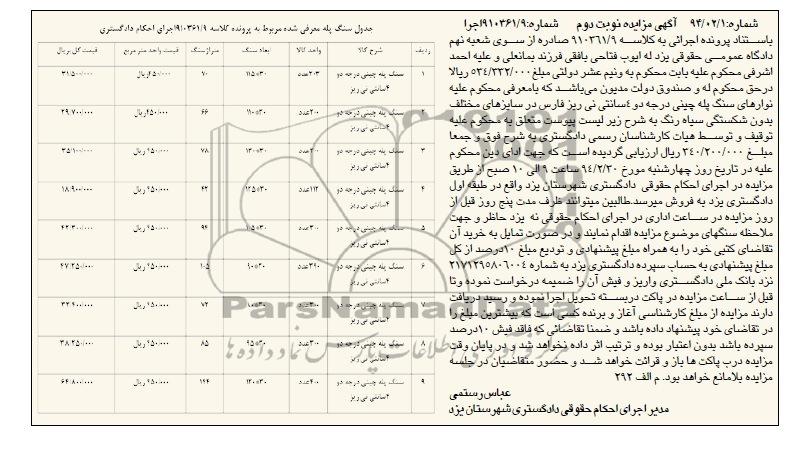 شماره:۹۴/۰۲/۱ آگهی مزایده نوبت دوم شماره:۹۱۰۳۶۱/۹اجرا
باستناد پرونده اجرائی به کلاسه ۹۱۰۳۶۱/۹ صادره از سوی شعبه نهم
دادگاه عمومی حقوقی یزد له ایوب فتاحی بافقی فرزند یمانعلی و علیه احمد
اشرفی محکوم علیه بابت محکوم به ونیم عشر دولتی مبلغ۵۳٤/۳۳۲/۰۰۰ ریالا
درحق محکوم له و صندوق دولت مدیون می‌باشد که بامعرفی محکوم علیه
نوارهای سنگ پله چینی درجه دو ٤سانتی نی ریز فارس در سایزهای مختلف
بدون شکستگی سیاه رنگ به شرح زیر لیست پیوست متعلق به محکوم علیه
توقیف و توسط هیات کارشناسان رسمی دادگستری به شرح فوق و جمعا
مبلغ ۳٤۰/۲۰۰/۰۰۰ ریال ارزیابی گردیده است که جهت ادای دین محکوم
علیه در تاریخ روز چهارشنبه مورخ ۹٤/۲/۳۰ ساعت ۹ الی ۱۰ صبح از طریق
مزایده در اجرای احکام حقوقی دادگستری شهرستان یزد واقع در طبقه اول
دادگستری یزد به فروش میرسد.طالبین میتوانند ظرف مدت پنج روز قبل از
روز مزایده در ساعت اداری در اجرای احکام حقوقی نه یزد حاظر و جهت
ملاحظه سنگهای موضوع مزایده اقدام نمایند و در صورت تمایل به خرید آن
تقاضای کتبی خود را به همراه مبلغ پیشنهادی و تودیع مبلغ ۱۰درصد از کل
مبلغ پیشنهادی به حساب سپرده دادگستری یزد به شماره ۲۱۷۱۲۹۵۸۰۶۰۰٤
نزد بانک ملی دادگستری واریز و فیش آن را ضمیمه درخواست نموده و تا
قبل از ساعت مزایده در پاکت دربسته تحویل اجرا نموده و رسید دریافت
دارند مزایده از مبلغ کارشناسی آغاز و برنده کسی است که بیشترین مبلغ را
در تقاضای خود پیشنهاد داده باشد و ضمنا تقاضائی که فاقد فیش ۱۰درصد
سپرده باشد بدون اعتبار بوده و ترتیب اثر داده نخواهد شد و در پایان وقت
مزایده درب پاکت ها باز و قرائت خواهد شد و حضور متقاضیان در جلسه
مزایده بلامانع خواهد بود. م الف ۲۹۲
عباس رستمی
مدیر اجرای احکام حقوقی دادگستری شهرستان یزد
جدول سنگ پله معرفی شده مربوط به پرونده کلاسه ۹۱۰۳۶۱/۹اجرای احکام دادگستری
ردیف شرح کالا واحد کالا ابعاد سنگ متراژ سنگ قیمت واحد متر مربع قیمت کل بریال
۱ سنگ پله چینی درجه دو ۲۰۳عدد ۳۰*۱۱۵ ۷۰ ۴۵۰/۰۰۰ریال ۳۱/۵۰۰/۰۰۰
۴سانتی نی ریز
۲ سنگ پله چینی درجه دو ۲۰۰عدد ۳۰*۱۱۰ ۶۶ ۴۵۰/۰۰۰ریال ۲۹/۷۰۰/۰۰۰
۴سانتی نی ریز
۳ سنگ پله چینی درجه دو ۲۰۰عدد ۳۰*۱۳۰ ۷۸ ۴۵۰/۰۰۰ریال ۳۵/۱۰۰/۰۰۰
۴سانتی نی ریز
۴ سنگ پله چینی درجه دو ۱۱۲عدد ۳۰*۱۲۵ ۴۲ ۴۵۰/۰۰۰ ریال ۱۸/۹۰۰/۰۰۰
۴سانتی نی ریز
۵ سنگ پله چینی درجه دو ۳۰۰عدد ۳۰*۱۰۵ ۹۴ ۴۵۰/۰۰۰ ریال ۴۲/۳۰۰/۰۰۰
۴سانتی نی ریز
۶ سنگ پله چینی درجه دو ۳۹۰عدد ۳۰*۹۰ ۱۰۵ ۴۵۰/۰۰۰ ریال ۴۷/۲۵۰/۰۰۰
۴سانتی نی ریز
۷ سنگ پله چینی درجه دو ۳۰۰عدد ۳۰*۸۰ ۷۲ ۴۵۰/۰۰۰ ریال ۳۲/۴۰۰/۰۰۰
۴سانتی نی ریز
۸ سنگ پله چینی درجه دو ۳۰۰عدد ۳۰*۹۵ ۸۵ ۴۵۰/۰۰۰ ریال ۳۸/۲۵۰/۰۰۰
۴سانتی نی ریز
۹ سنگ پله چینی درجه دو ۴۰۰عدد ۳۰*۱۲۰ ۱۴۴ ۴۵۰/۰۰۰ ریال ۶۴/۸۰۰/۰۰۰
۴سانتی نی ریز
ParsNamadData